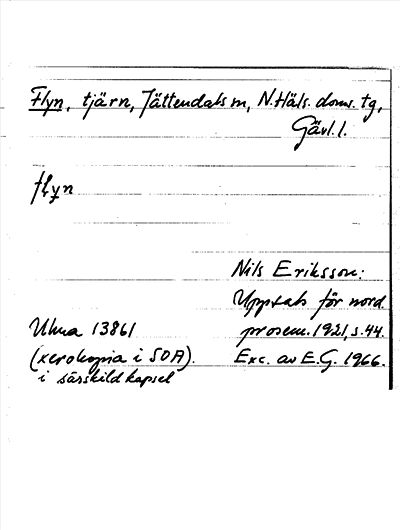 Flyn, tjärn, Jättendals sn, N. Häls. doms. tg,
Gävl. l.
fly̨n
Nils Eriksson:
Uppsats för nord.
prosem. 1921, s. 44.
Exc. av E.G. 1966.
Ulma 13861
(xerokopia i SOA).
i särskild kapsel